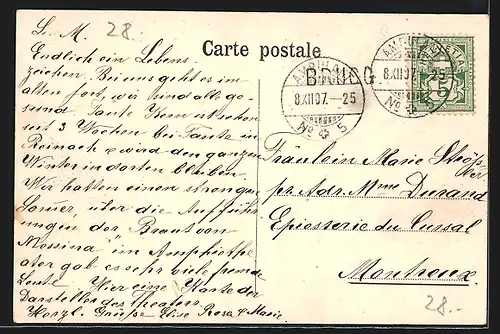 L. M.
28.
Carte postale.
Endlich ein Lebens-
zeichen. Bei uns geht es im
alten fort, wir sind alle ge-
sund. Tante Kern ist schon
seit 3 Wochen bei Tante in
Reinach & wird den ganzen
Winter in dorten bleiben.
Wir hatten einen strengen
Sommer, über die Aufführ-
ungen der "Braut von
Messina" im Amphithe-
ater gab es sehr viele fremde
Leute. Hier eine Karte der
Darsteller des Theaters.
Herzl. Grüsse Elise Rosa & Marie.
BRUGG
AMBULANT
8.XII.07.–25
No 5
AMBULANT
8.XII.07.–25
No 5
HELVETIA
5
Fräulein Marie
pr. Adr. Mme Durand
Epicerie du Cursal
Montreux.
28.-